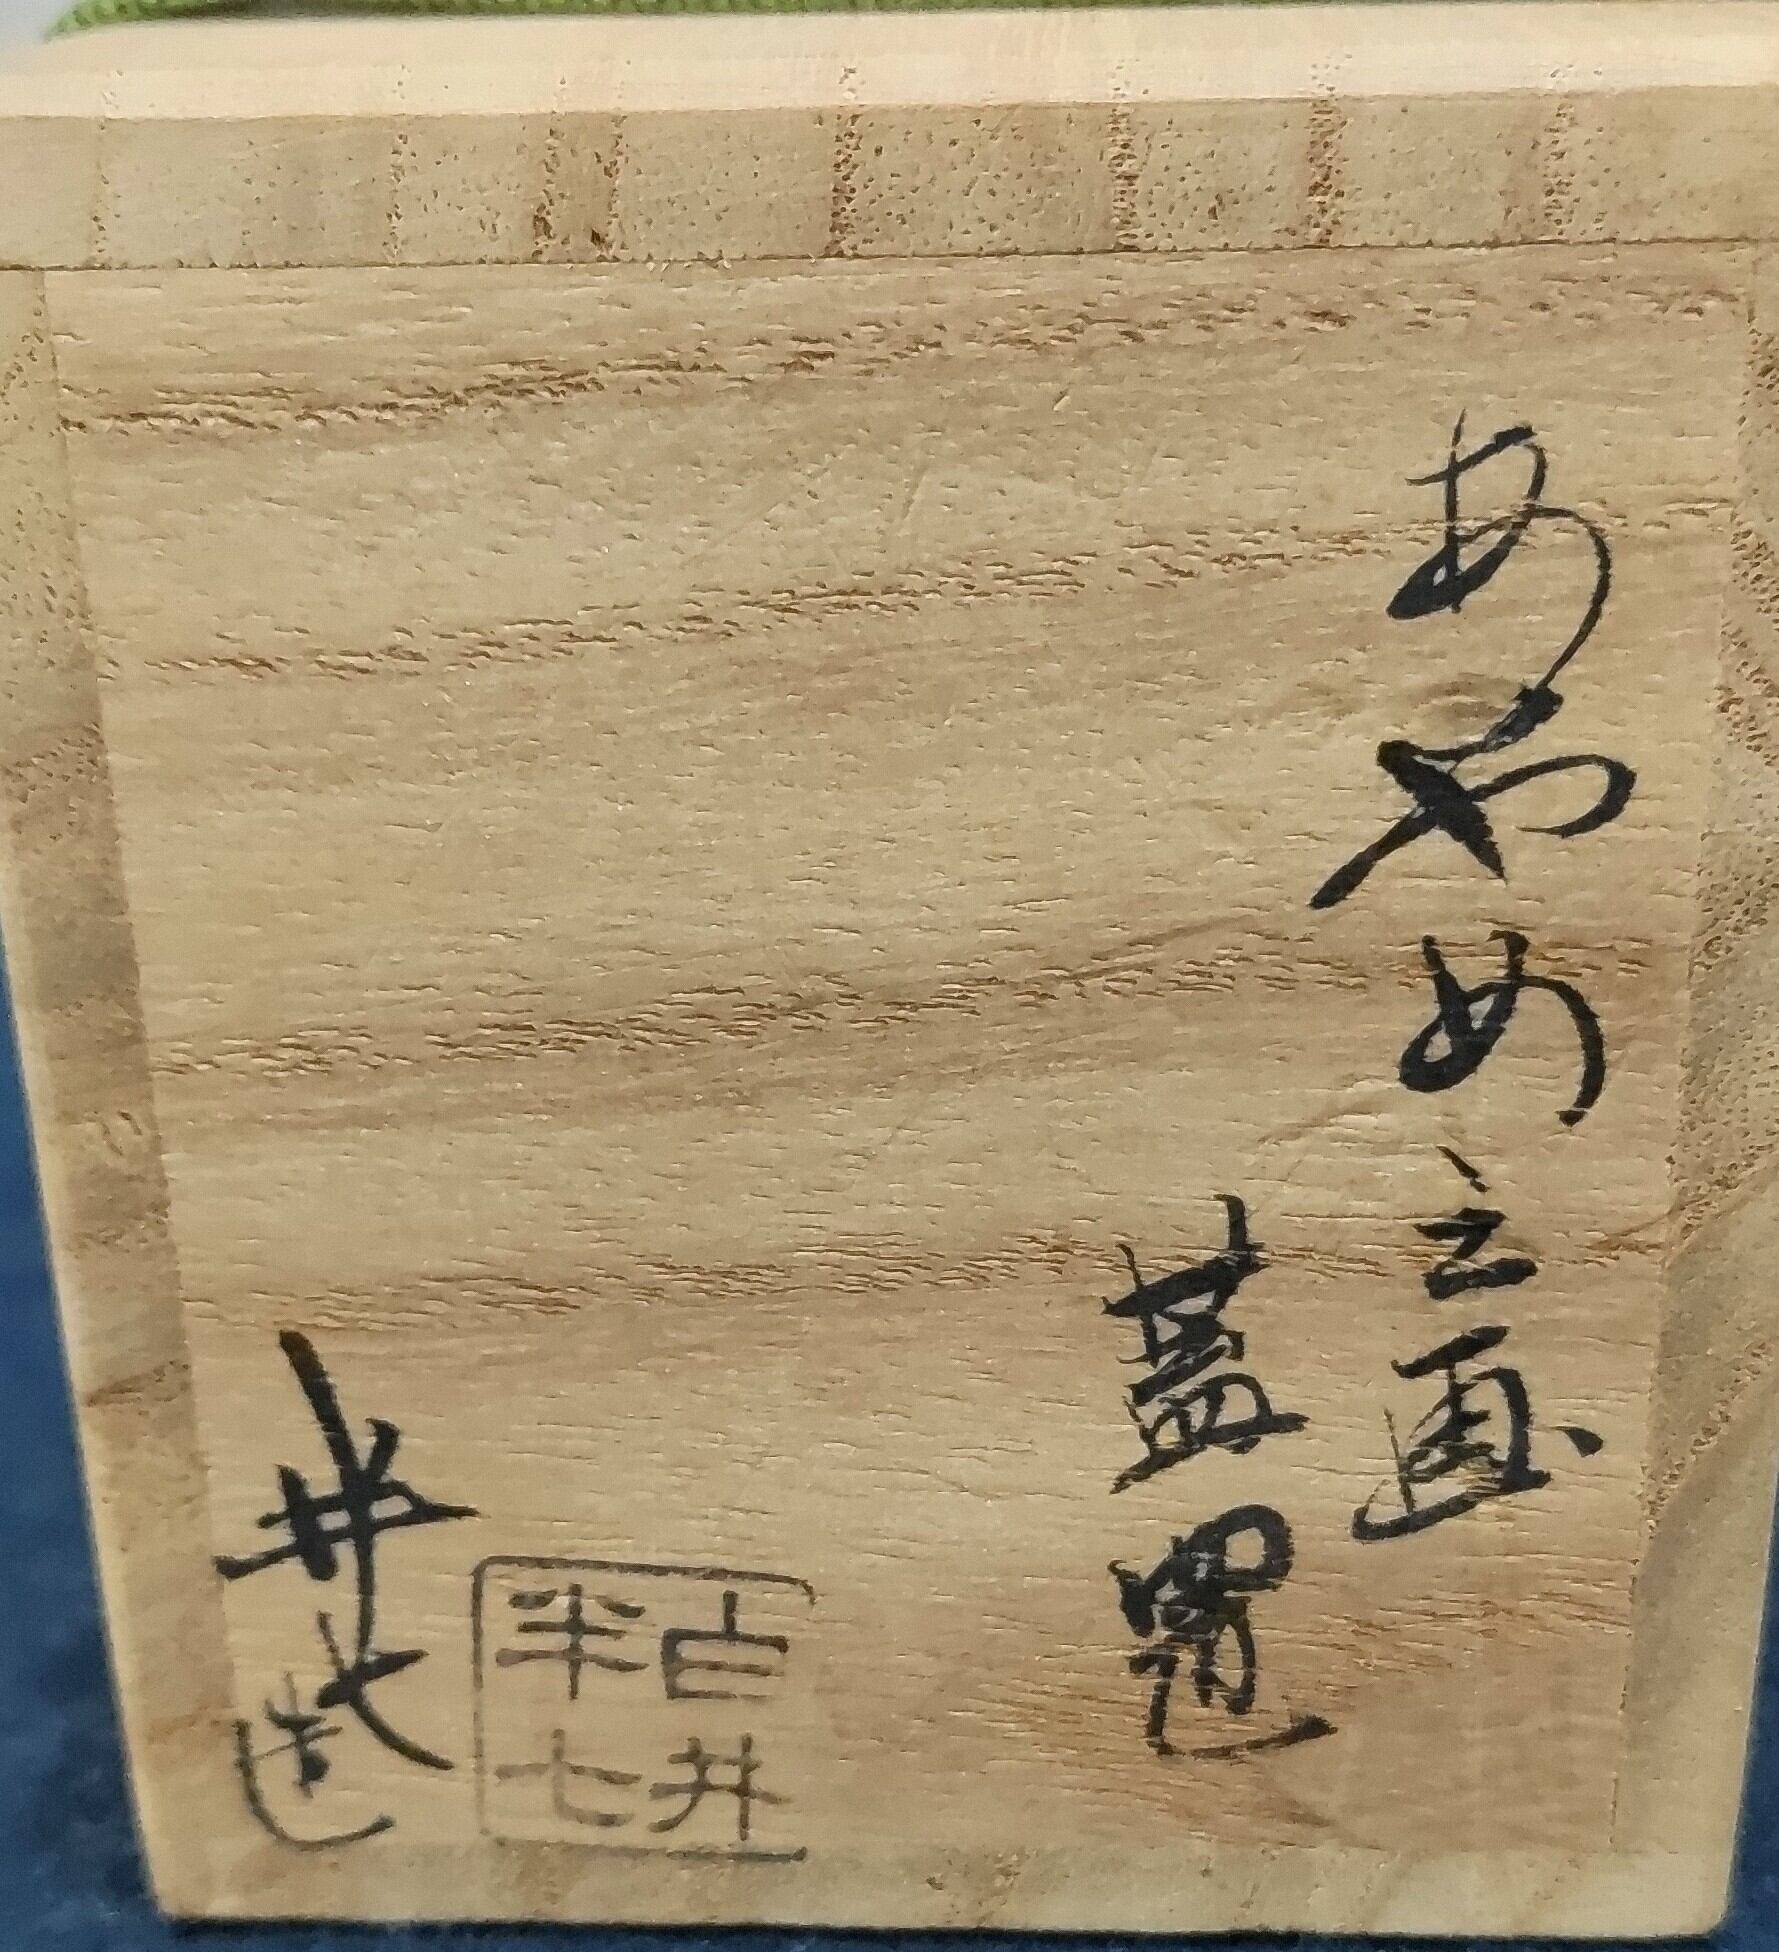 あやめ之画
蓋置
白井
半七
半七造